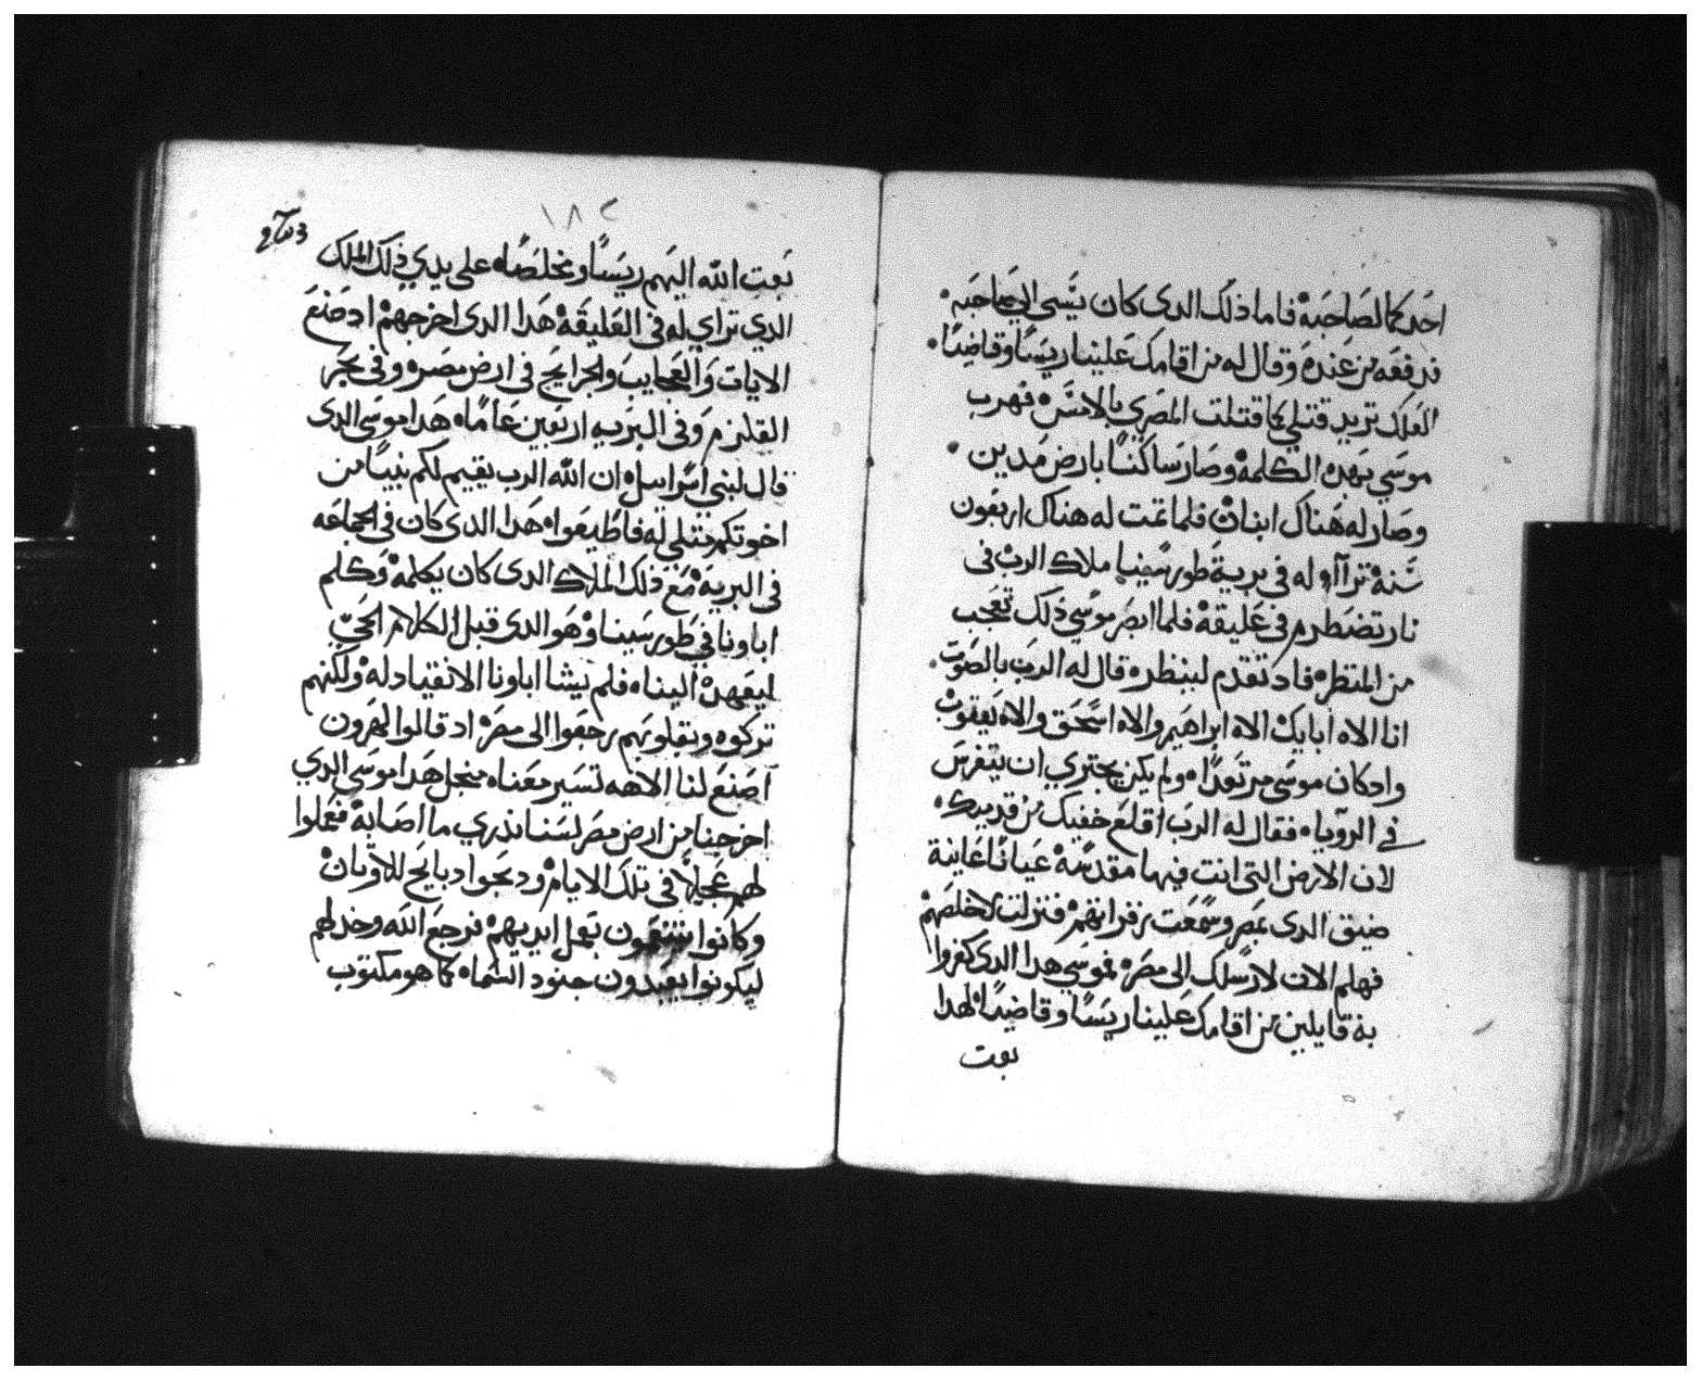 احدكما لصاحبه فاما ذلك الدى كان يسى الي صاحبه
فدفعه من عنده وقال له من اقامك علينا ريسًا وقاضيًا
العلك تريد قتلي كما قتلت المصري بالامس فهرب
موسي بهده الكلمه وصار ساكنًا بارض مدين
وصار له هناك ابنان فلما تمت له هناك اربعون
سنه تراآا له في برية طور سينا ملاك الرب في
نار تضطرم في عليقه فلما ابصر موسي ذلك تعجب
من المنظره فاد تقدم لينظره قال له الرب بالصوت
انا الاه ابايك الاه ابراهيم والاه اسحق والاه يعقوب
واد كان موسى مرتعدًا ولم يكن يجتري ان يتفرس
في الروياه فقال له الرب اقلع خفيك من قدميك
لان الارض التى انت فيها مقدسه عيانًا عاينة
ضيق الدى بمصر وسمعت زفراتهم فنزلت لاخلصهم
فهلم الان لارسلك الى مصره فموسي هدا الدى كفروا
به قايلين من اقامك علينا ريسًا وقاضيًا لهدا
بعت
١٨٢
بعت الله اليهم ريسًا ومخلصًا على يدي ذلك الملك
الدي تراي له في العليقه هدا الدى اخرجهم اد صنع
الايات والعجايب والجرايح في ارض مصره وفي بحر
القلزم وفى البريه اربعين عامًا هدا موسى الدى
قال لبني اسراييل ان الله الرب يقيم لكم نبيًا من
اخوتكم متلي له فاطيعوا هدا الدى كان في الجماعه
في البريه مع ذلك الملاك الدى كان يكلمه وكلم
اباونا في طور سينا وهو الدى قبل الكلام الحي
ليعهده الينا فلم يشا اباونا الانقياد له ولكنهم
تركوه وبقلوبهم رجعوا الى مصر اد قالوا لهرون
اصنع لنا الاهه تسير معنا منجل هدا موسى الدي
اخرجنا من ارض مصر لسنا ندري ما اصابه فعملوا
لهم عجلًا في تلك الايام ودبحوا دبايح للاوتان
وكانوا يتنعمون بعمل ايديهم فرجع الله وخدلهم
ليكونوا يعبدون جنود السماه كما هو مكتوب